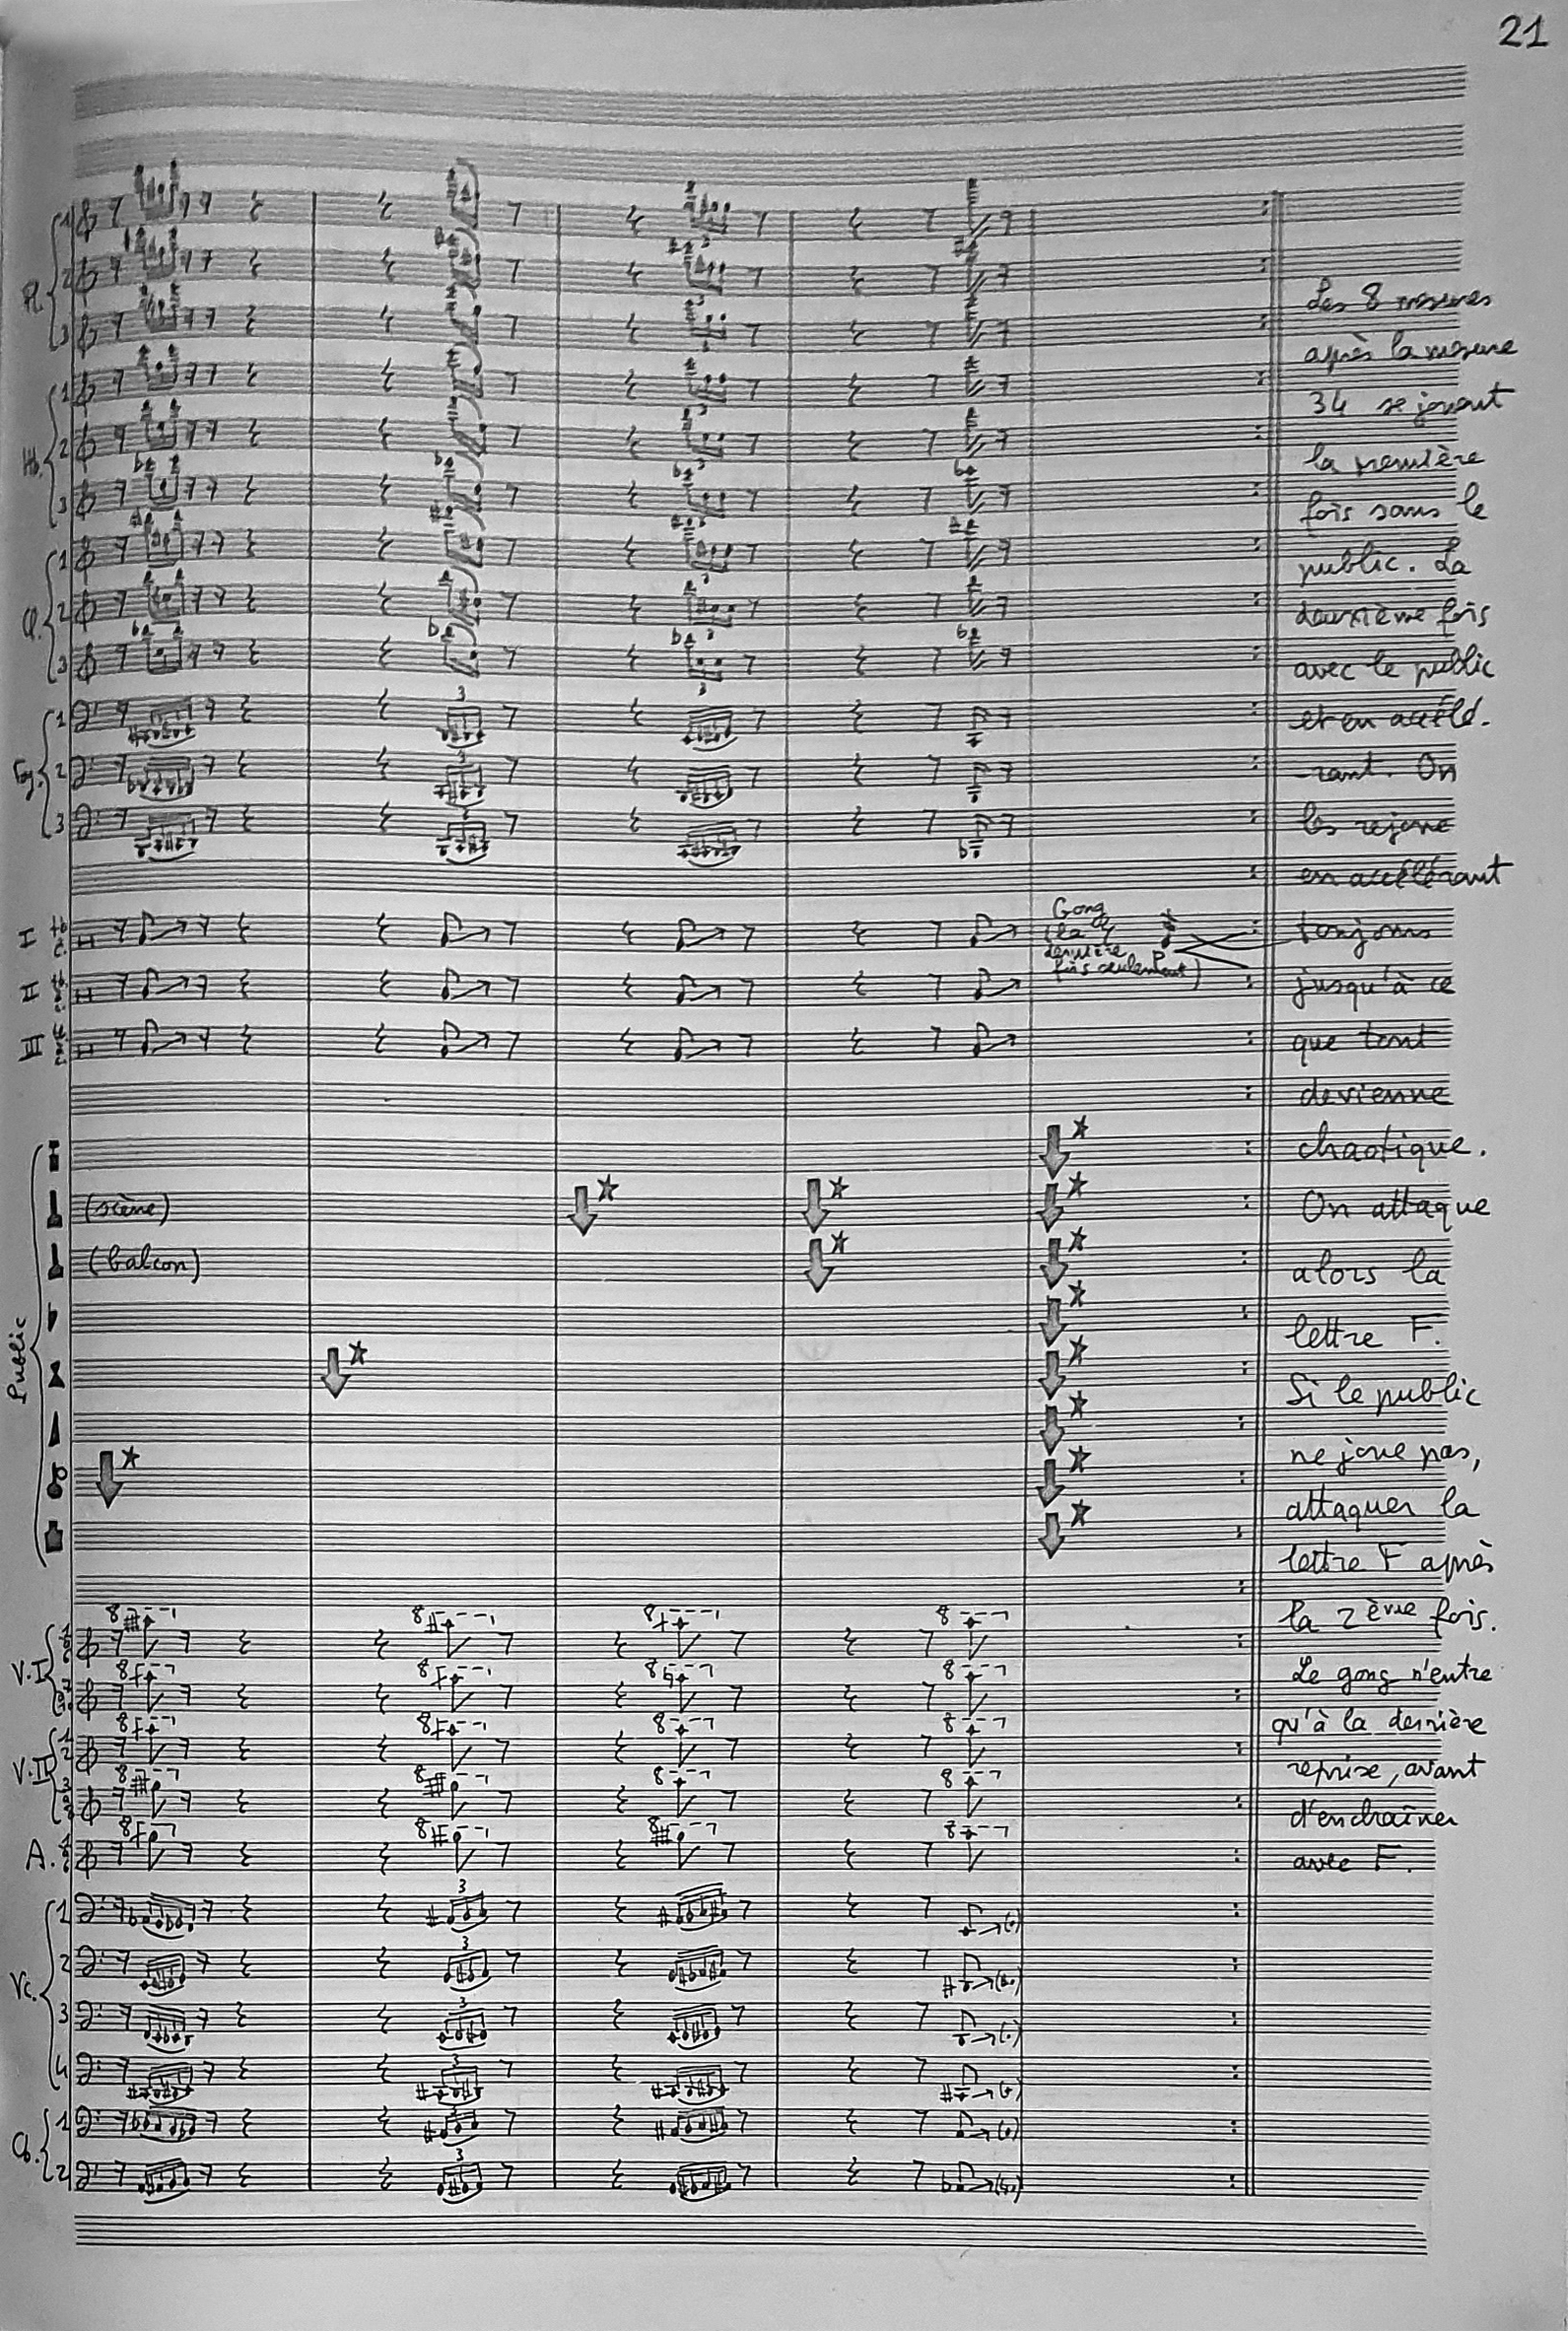 21
Fl.
1
2
3
Hb.
1
2
3
Cl.
1
2
3
Fag.
1
2
3
I
II
III
Gong
(la
dernière
fois seulement)
Public
(scène)
(balcon)
V.I
V.II
A.
Vc.
1
2
3
4
Cb.
1
2
Les 8 mesures
après la mesure
34 se jouent
la première
fois sans le
public. La
deuxième fois
avec le public
et en accélé-
-rant. On
les rejoue
en accélérant
toujours
jusqu'à ce
que tout
devienne
chaotique.
On attaque
alors la
lettre F.
Si le public
ne joue pas,
attaquer la
lettre F après
la 2ème fois.
Le gong n'entre
qu'à la dernière
reprise, avant
d'enchaîner
avec F.